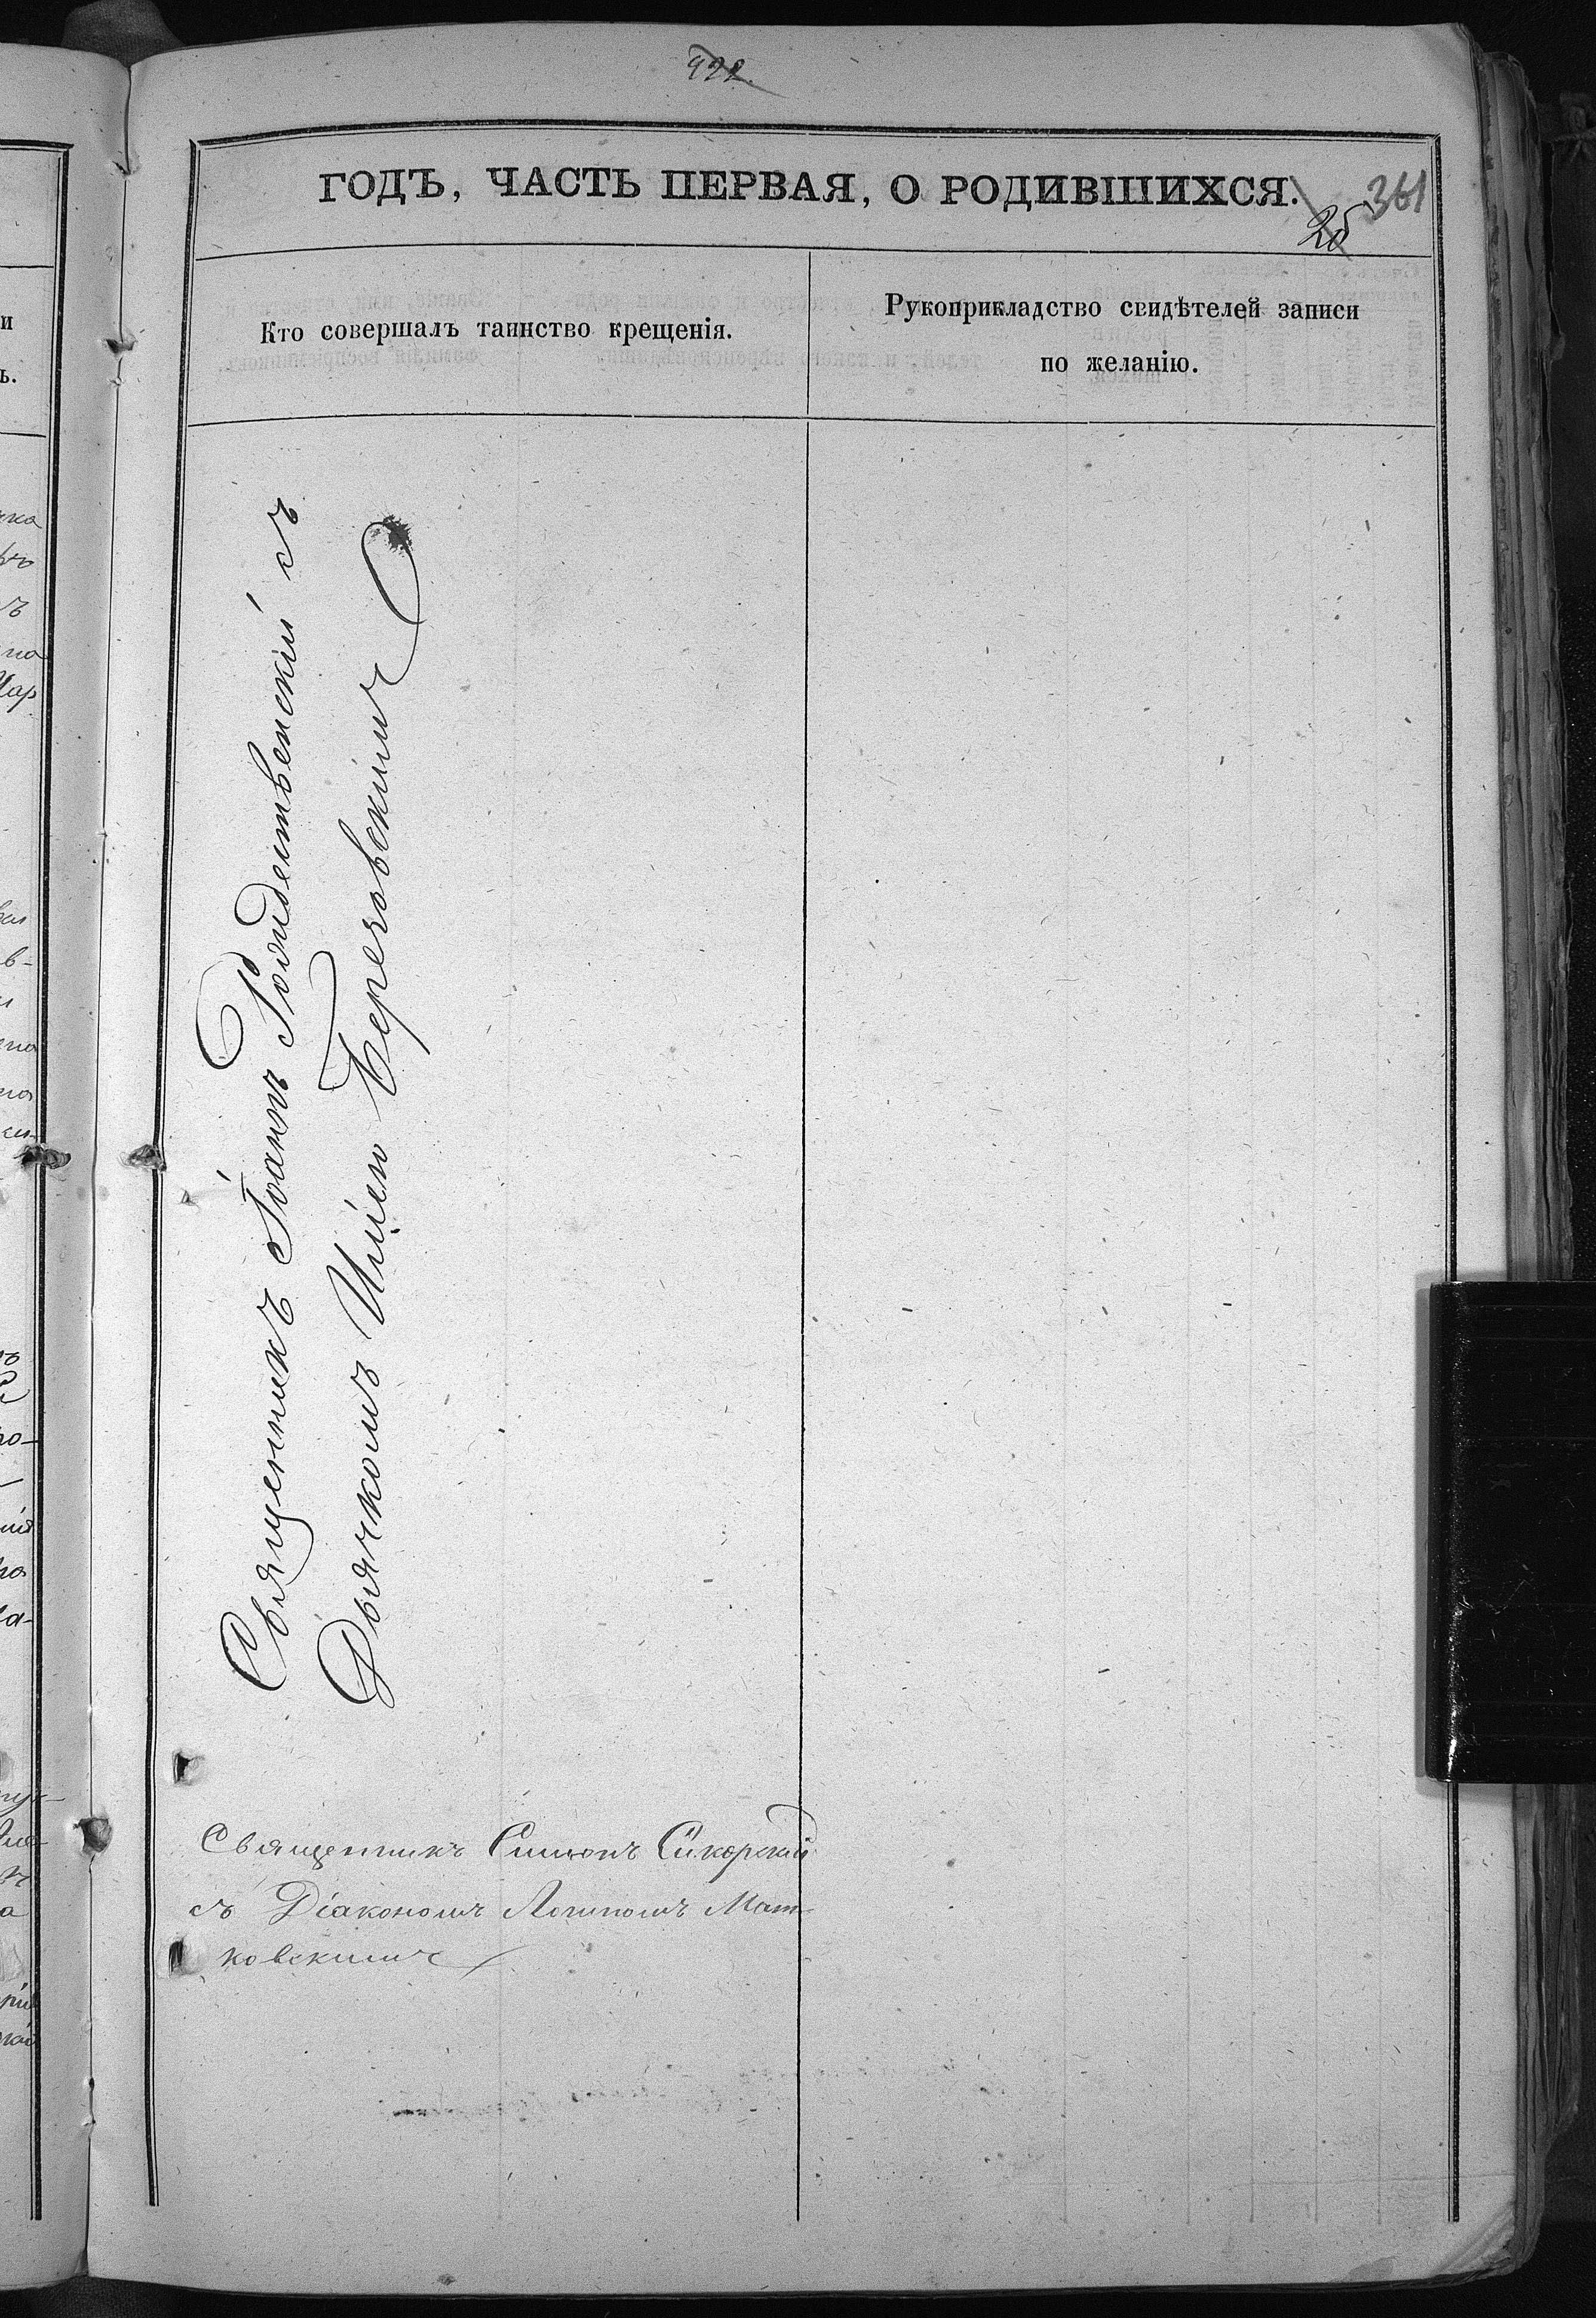 422.
ГОДЪ, ЧАСТЬ ПЕРВАЯ, О РОДИВШИХСЯ.
361
26
Кто совершалъ таинство крещенія.
Рукоприкладство свидѣтелей записи
по желанію.
Священникъ Іоаннъ Рождественскій съ
Дьячкомъ Иліею Березовскимъ
Священникъ Симеонъ Сикорскій
съ Діакономъ Логиномъ Мат-
ковскимъ